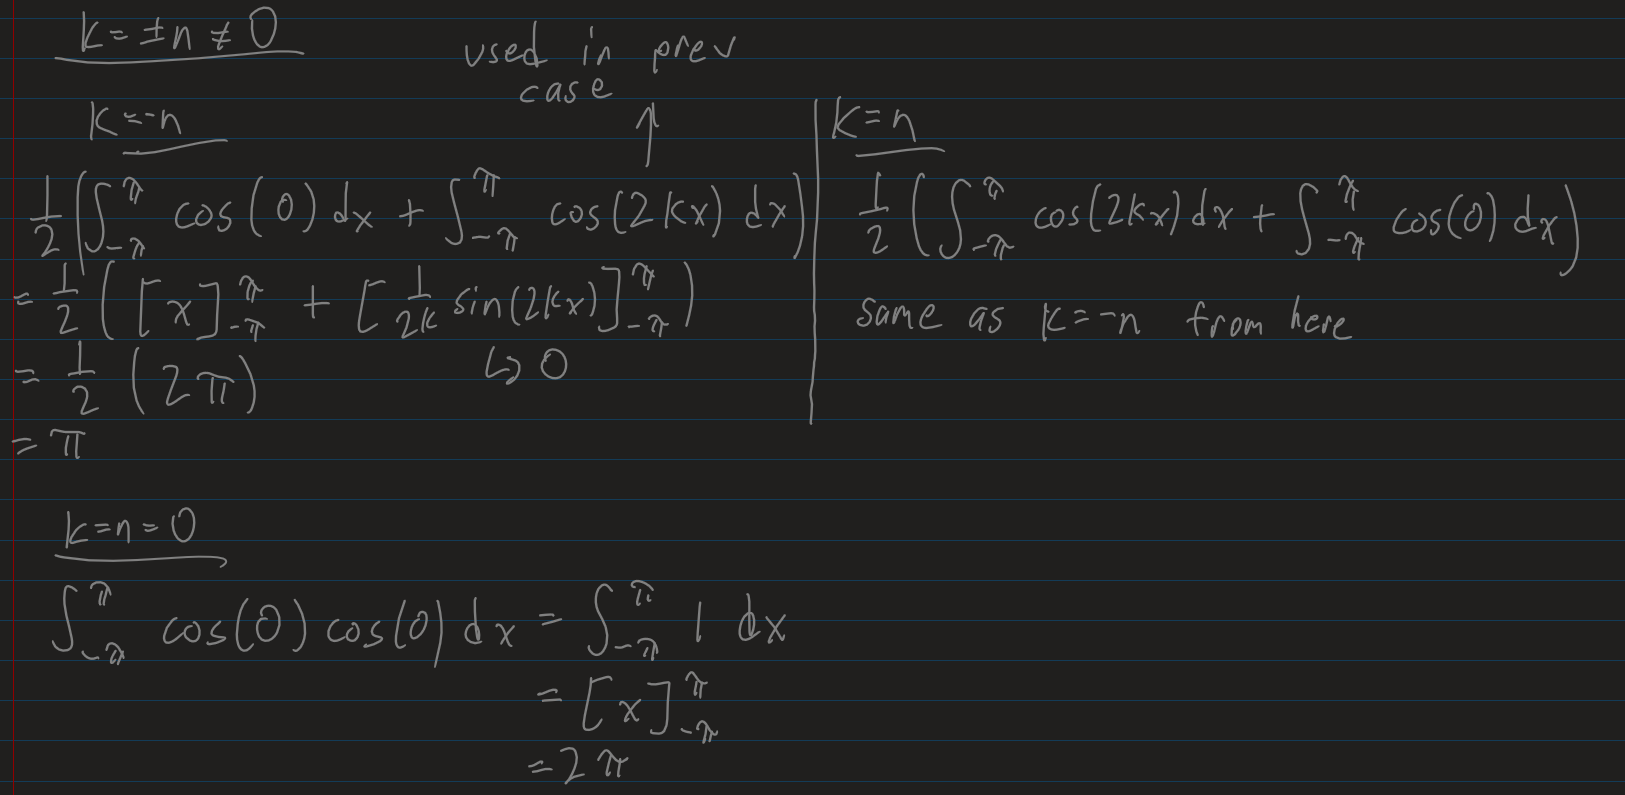 k = ±n ≠ 0
used in prev
case
↑
k = -n
1/2 (∫_{-π}^{π} cos(0) dx + ∫_{-π}^{π} cos(2kx) dx)
= 1/2 ([x]_{-π}^{π} + [1/2k sin(2kx)]_{-π}^{π})
↳ 0
= 1/2 (2π)
= π
k = n
1/2 (∫_{-π}^{π} cos(2kx) dx + ∫_{-π}^{π} cos(0) dx)
same as k = -n from here
k = n = 0
∫_{-π}^{π} cos(0) cos(0) dx = ∫_{-π}^{π} 1 dx
= [x]_{-π}^{π}
= 2π